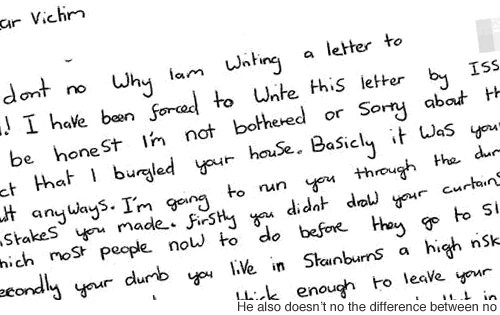 ar Victim
dont no Why Iam Writing a letter to
! I have been forced to Write this letter by ISS
be honest I'm not bothered or Sorry about th
ct that I burgled your house. Basicly it was your
lt anyways. I'm going to run you through the dum
istakes you made. firstly you didnt draw your curtains
hich most people now to do before they go to Sl
econdly your dumb you live in Stainburns a high risk
thick enough to leave your
He also doesn't no the difference between no